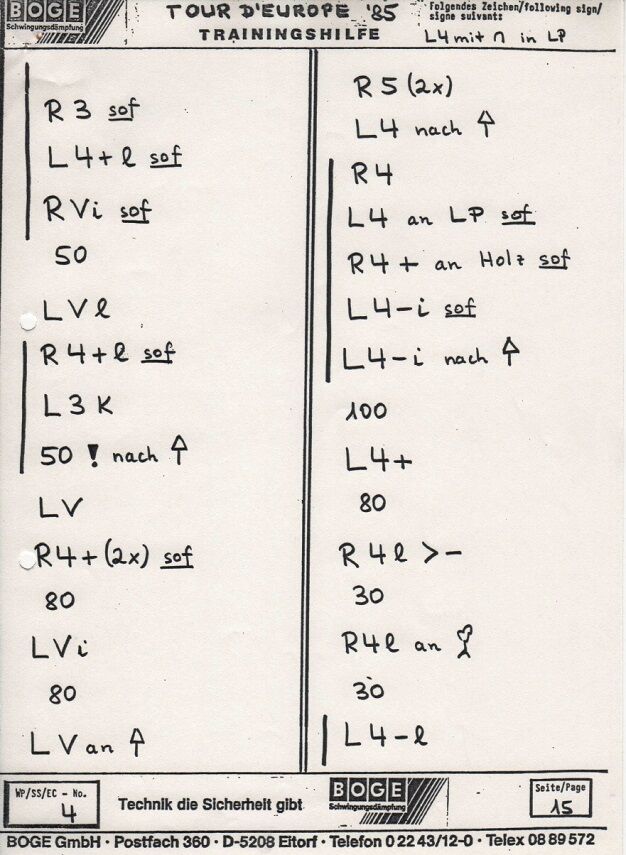 BOGE
Schwingungsdämpfung
TOUR D'EUROPE '85
TRAININGSHILFE
folgendes Zeichen/following sign/
signe suivant:
L4 mit ∩ in LP
R 3 sof
L4+ l sof
R Vi sof
50
L V l
R 4 + l sof
L 3 K
50 ! nach ↑
L V
R4+ (2x) sof
80
L V i
80
L V an ↑
R 5 (2x)
L4 nach ↑
R 4
L4 an LP sof
R4+ an Holz sof
L4-i sof
L4-i nach ↑
100
L4+
80
R 4 l >-
30
R4l an
30
L4-l
WP/SS/EC - No.
4
Technik die Sicherheit gibt
BOGE
Schwingungsdämpfung
Seite/Page
15
BOGE GmbH · Postfach 360 · D-5208 Eitorf · Telefon 0 22 43/12-0 · Telex 08 89 572